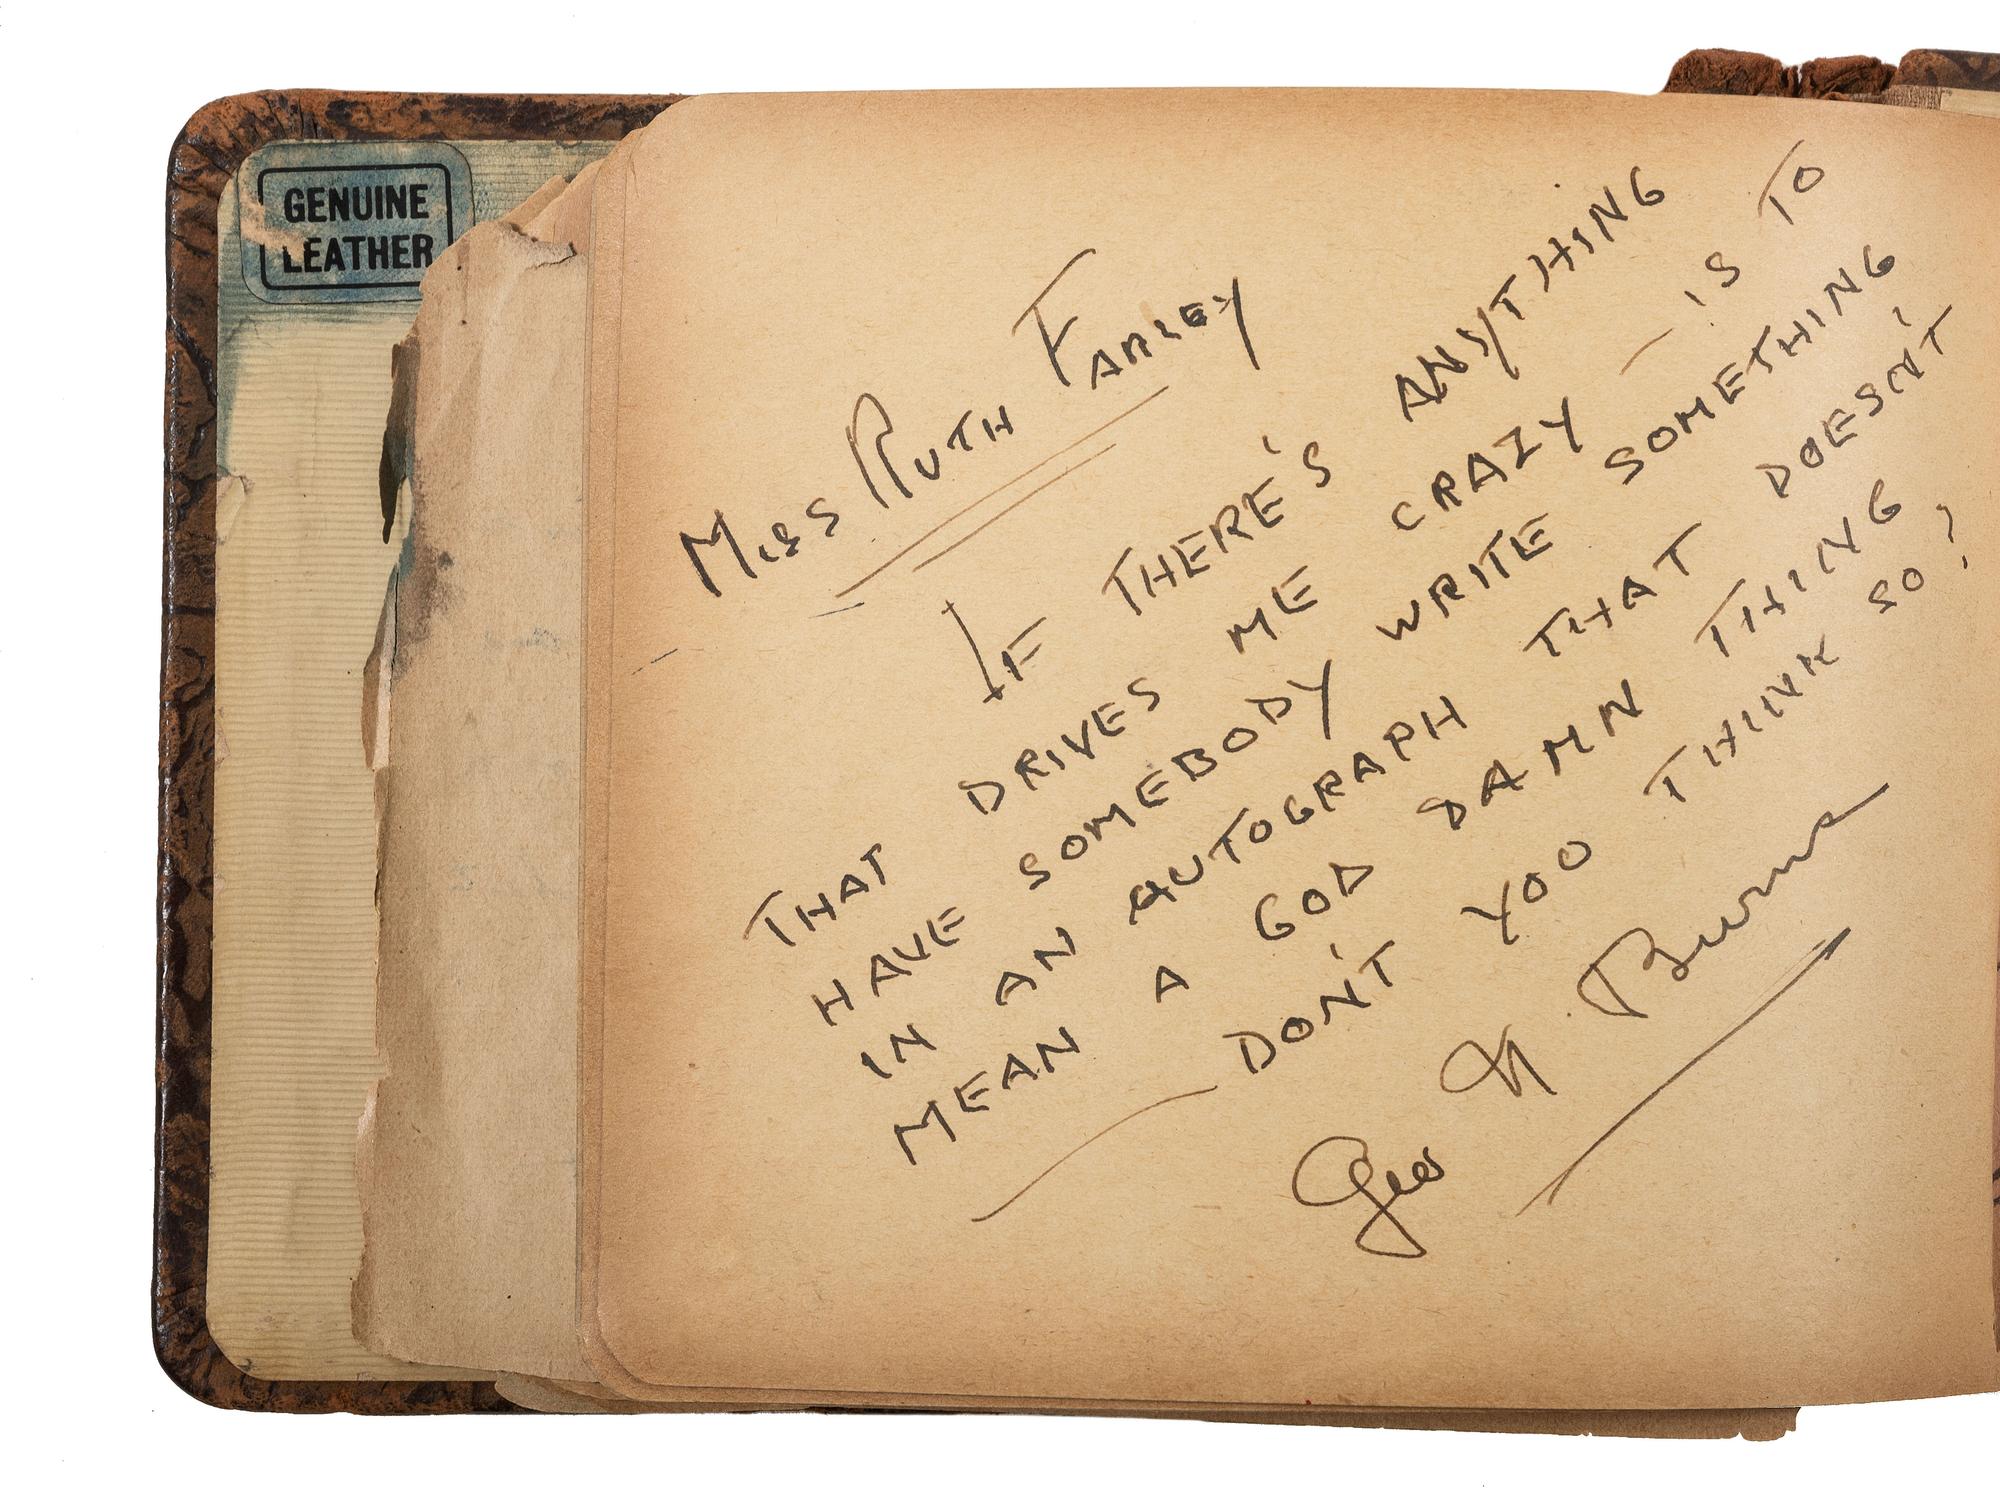 GENUINE
LEATHER
MISS RUTH FARLEY
IF THERE'S ANYTHING
THAT DRIVES ME CRAZY — IS TO
HAVE SOMEBODY WRITE SOMETHING
IN AN AUTOGRAPH THAT DOESN'T
MEAN A GOD DAMN THING
— DON'T YOU THINK SO?
Geo Burns